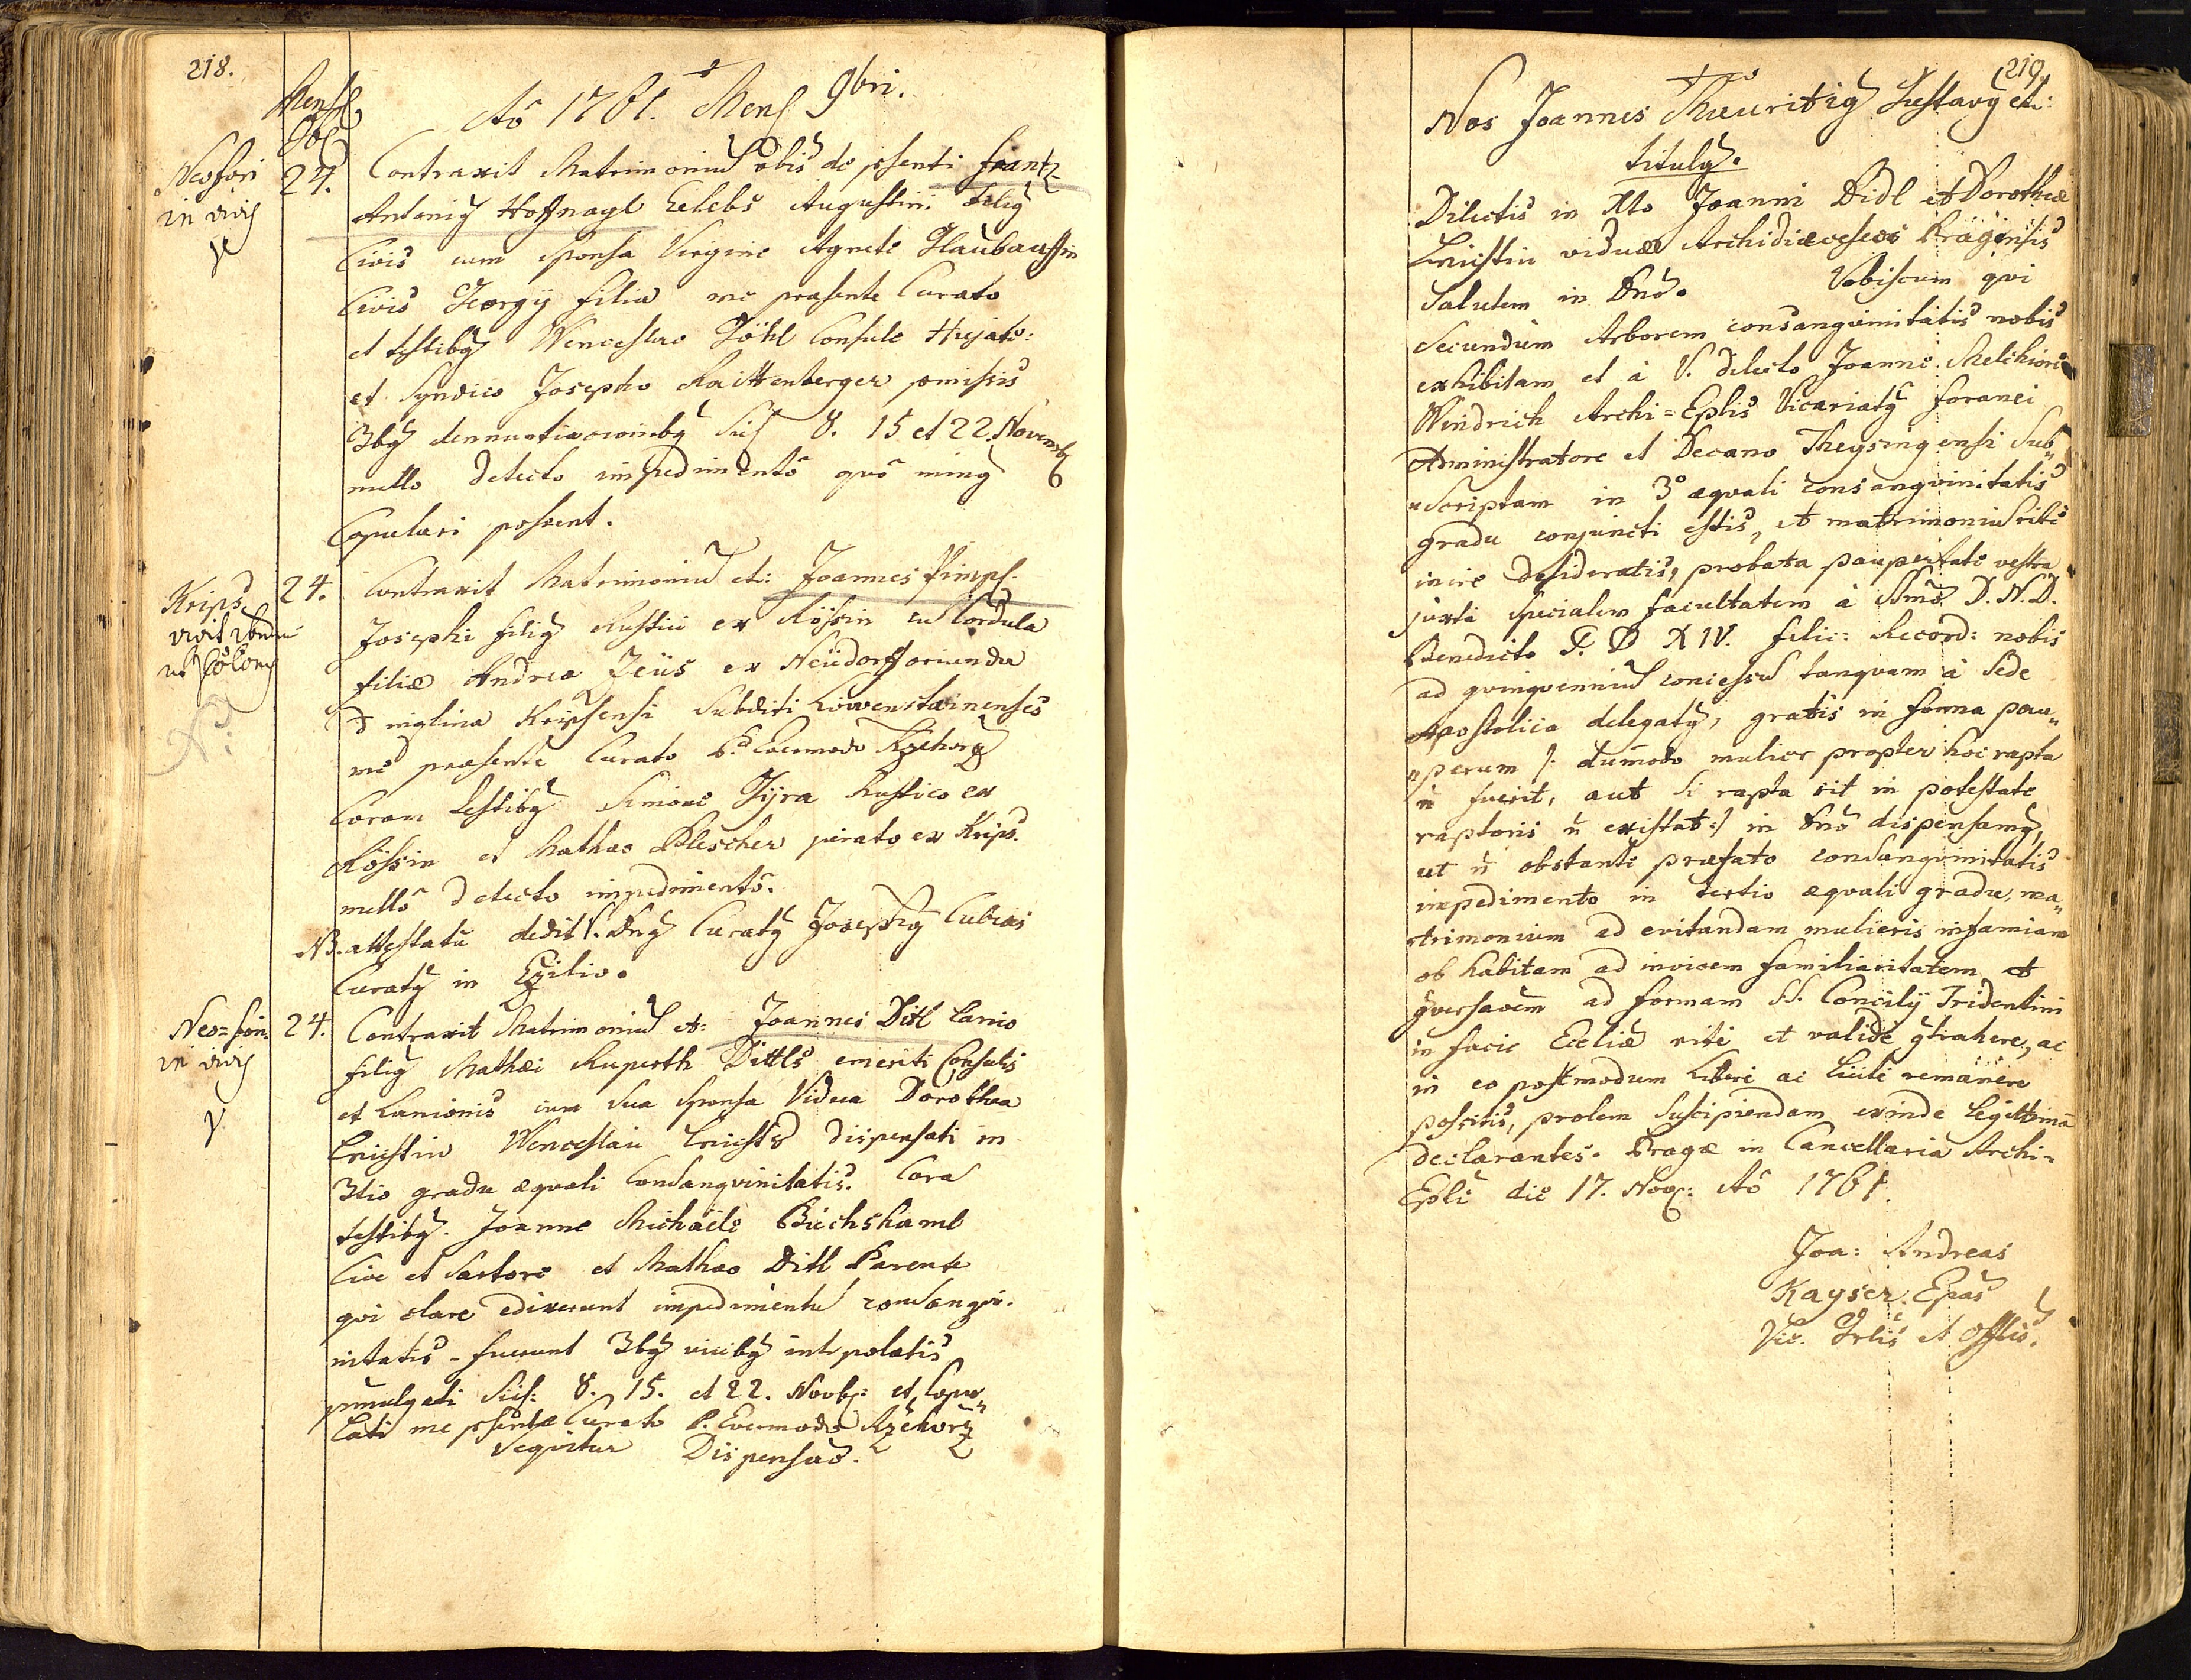 218.
Aõ 1761. Mens 9bri.
Mens
9br
Neofori
in urbe
24. Contraxit Matrimoniũ vbis de psenti Frantz
Antonig Hoffnagl Celebs Augustini Filig
Civis cum sponsa Virgine Agnete Glaubauffin
Civis Georgÿ filia me praesente Curato
et testibg Wenceslao Göhl Consule Hujate:
et Syndico Josepho Raittenberger pmissis
3bg denuntiaonibg 8. 15 et 22. Novemb
nullo detecto impedimentõ quõ ming
Copulari possent.
Krips
24. Contraxit Matrimoniũ etc: Joannes Pimpl.
Josephi filig Rustici ex Rössin cũ Cordula
filia Andrea Zeüs ex Neüdorff oriunda
Kripsensi Subditi Löwenstainenses
me praesente Curato P. Evermodo Rzehorz
Coram testibg Simone Jÿra Rustico ex
Rössin et Mathæo Plescher jurato ex Krips.
nullõ detecto impedimentõ.
NB. attestatũ dedit P. Dng Curatg Josephg
Curatg in
Neo=fori
in urbe
24. Contraxit Matrimoniũ et: Joannes Ditl Lanio
filig Mathæi Ruperth Dittls emeriti Consulis
et Lanionis cum Sua Sponsa Vidua Dorothea
Wenceslai dispensati in
3tio gradu æquali Consanqvinitatis. Corã
testibg. Joanne Michaele Büchshaml
Cive et Sartore et Mathæo Ditl Parente
qvi clare edixerunt impedimentũ consangvi-
nitatis - fuerunt 3bg vicibg interpolatis
pmulgati 8. 15. et 22. Novb: et Copu„
lati me psente Curato P. Evermodo Rzehorz
Seqvitur Dispensaõ.
219.
Nos Joannes Mauritig Gustavg etc:
titulg.
Dilectis in Xto Joanni Didl et Dorotheæ
viduæ Archidiæceseos Pragensis
Salutem in Dnõ. Vobiscum qvi
Secundum Arborem consangvinitatis nobis
exhibitam et à V. dilecto Joanne Melchiore
Windrich Archi=Eplis Vicariatg foranei
Administratore et Decano Theysingensi Sub„
„Scriptam in 3º æqvali consangvinitatis
gradu conjuncti estis, et matrimoniũ ritè
inire desideratis, probata paupertate vestra
juxta specialem facultatem à SSmo D. N. D.
Benedicto P. P. XIV. felic: Record: nobis
ad qvinqvenniũ concessã tanqvam à Sede
Apostolica delegatg, gratis in forma pau„
„perum /: dummodo mulier propter hoc rapta
ñ fuerit, aut si rapta sit in potestate
raptoris ñ existat:/ in Dnõ dispensamg,
ut ñ obstante præfato consangvinitatis
impedimento in tertio æqvali gradu, ma„
trimonium ad evitandam mulieris infamiam
ob habitam ad invicem familiaritatem et
gversaõem ad formam SS. Concilÿ Tridentini
in facie Eccliæ ritè et validè gtrahere, ac
in eo postmodum Liberè ac licitè remanere
possitis, prolem suscipiendam exinde legittimã
declarantes. Pragæ in Cancellaria Archi-
Epli die 17. Nov: Aõ 1761.
Joa: Andreas
Kayser Epũs
Vic. Grlis et Offlis.